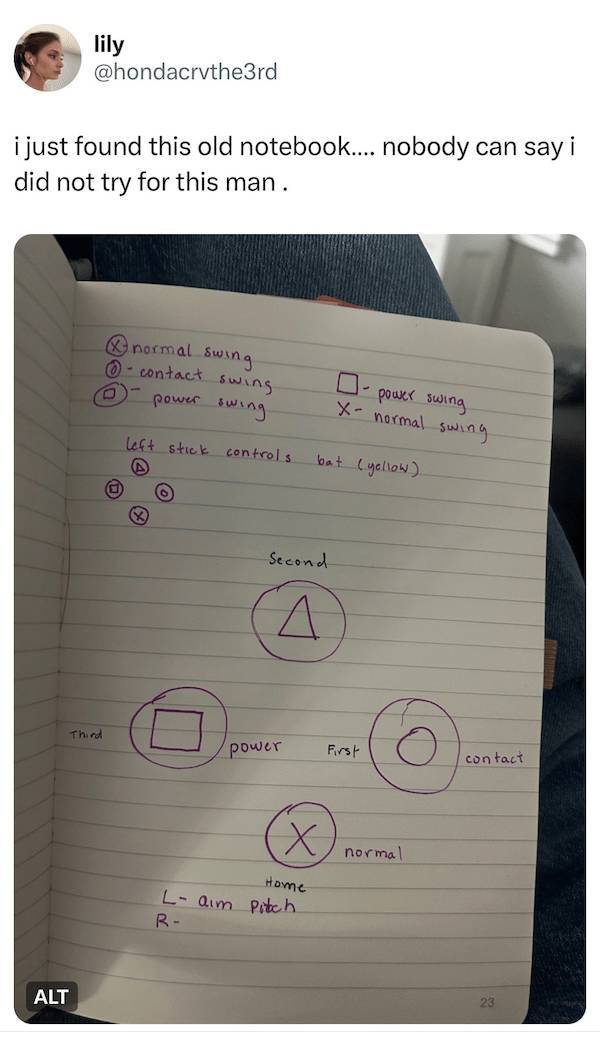 lily
@hondacrvthe3rd
i just found this old notebook.... nobody can say i
did not try for this man .
X - normal swing
O - contact swing
□ - power swing
□ - power swing
X - normal swing
Left stick controls bat (yellow)
△
□ O
X
Second
△
Third □ power First O contact
X normal
Home
L- aim Pitch
R-
ALT
23